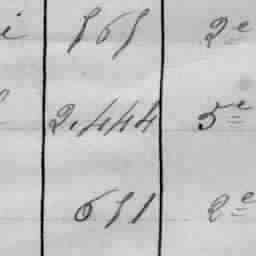 i 565 2e
2.444 5e
651 2e